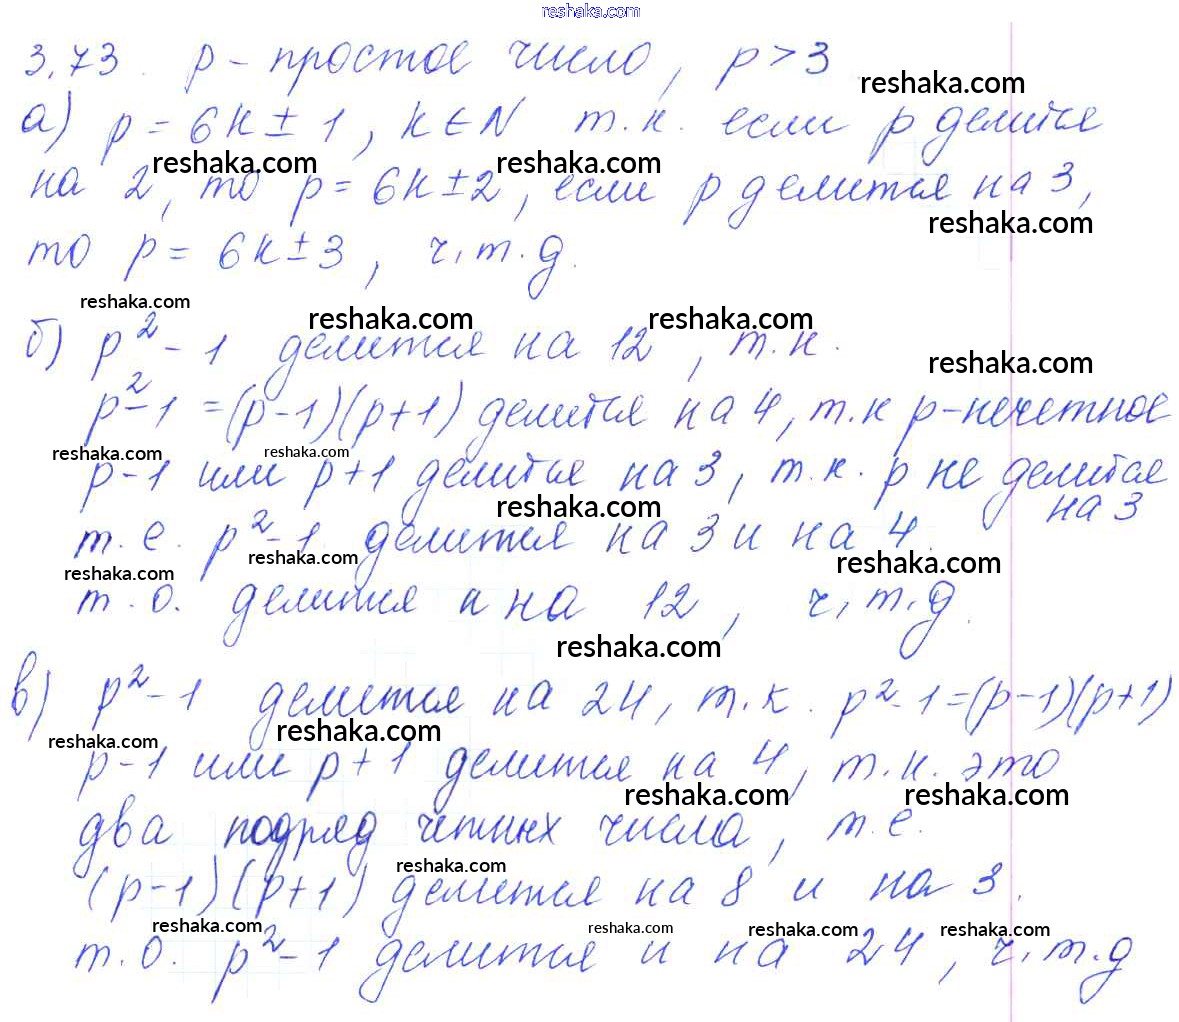 reshaka.com
3.73. p - простое число, p > 3
reshaka.com
а) p = 6k ± 1, k ∈ N т.к. если p делится
reshaka.com reshaka.com
на 2, то p = 6k ± 2, если p делится на 3,
reshaka.com
то p = 6k ± 3, ч.т.д.
reshaka.com reshaka.com reshaka.com
б) p² - 1 делится на 12, т.к.
reshaka.com
p² - 1 = (p-1)(p+1) делится на 4, т.к p - нечетное
reshaka.com reshaka.com
p-1 или p+1 делится на 3, т.к. p не делится
на 3
reshaka.com
т.е. p² - 1 делится на 3 и на 4.
reshaka.com reshaka.com reshaka.com
т.о. делится и на 12, ч.т.д.
reshaka.com
в) p² - 1 делится на 24, т.к. p² - 1 = (p-1)(p+1)
reshaka.com reshaka.com
p-1 или p+1 делится на 4, т.к. это
reshaka.com reshaka.com
два подряд четных числа, т.е.
reshaka.com
(p-1)(p+1) делится на 8 и на 3.
reshaka.com reshaka.com reshaka.com reshaka.com
т.о. p² - 1 делится и на 24, ч.т.д